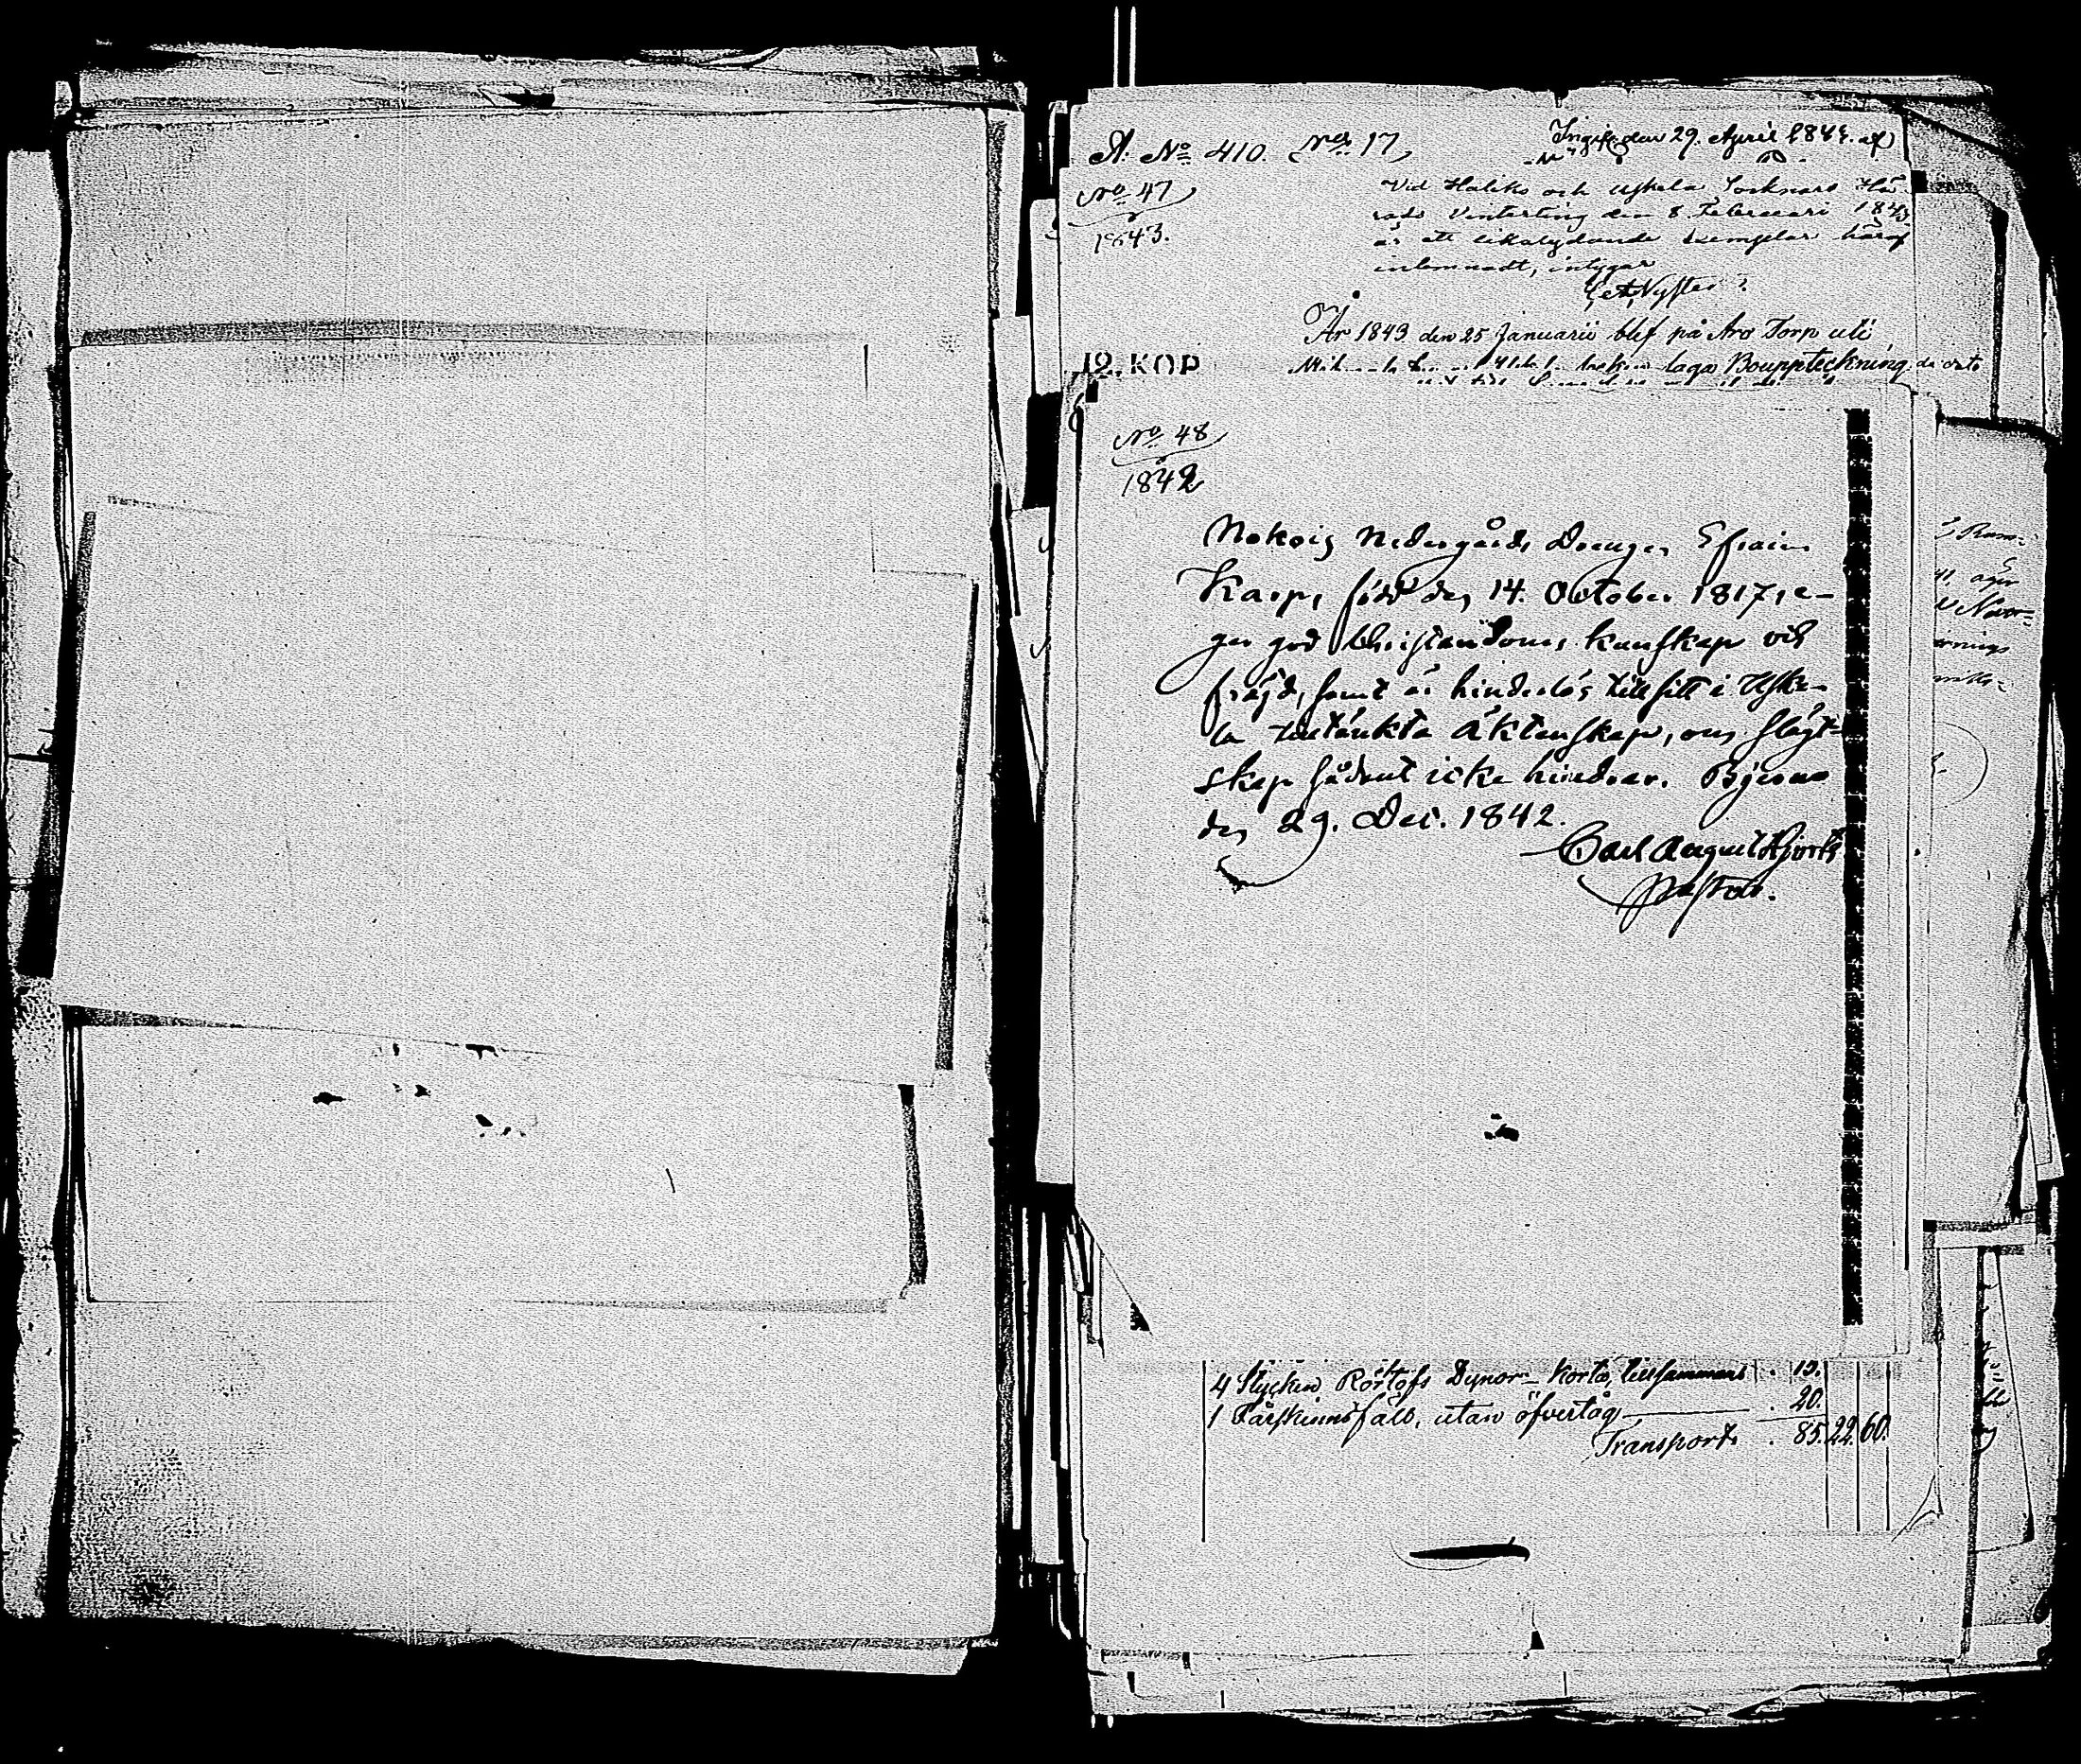 A. No 410. No 17,
Ingif. den 29. April 184
No 47
1843.
Vid Haliko och Uskela Socknars Hä
rads Vinterting den 8 Februari 1843
är ett likalydande exemplar häraf
inlemnadt, intygar
År 1843 den 25 Januarii blef på Aro Torp uti
12. KOP
laga Bouppteckning
No 48
1842
Nokois Nedergårds Drengen Efraim
Karp, född den 14. October 1817, e-
ger god Christendoms kunskap och
fräjd, samt är hinderlös till sitt i Uske-
la tilltänkta Äktenskap, om slägt-
skap sådant icke hindrar. Bjerno
den 29. Dec. 1842.
Carl August Hjorth
Pastor.
4 Stycken Dynor Korta, tillsammans . 15.
1 Fårskinnsfäld, utan öfvertåg . 20.
Transport . 85.22.60.